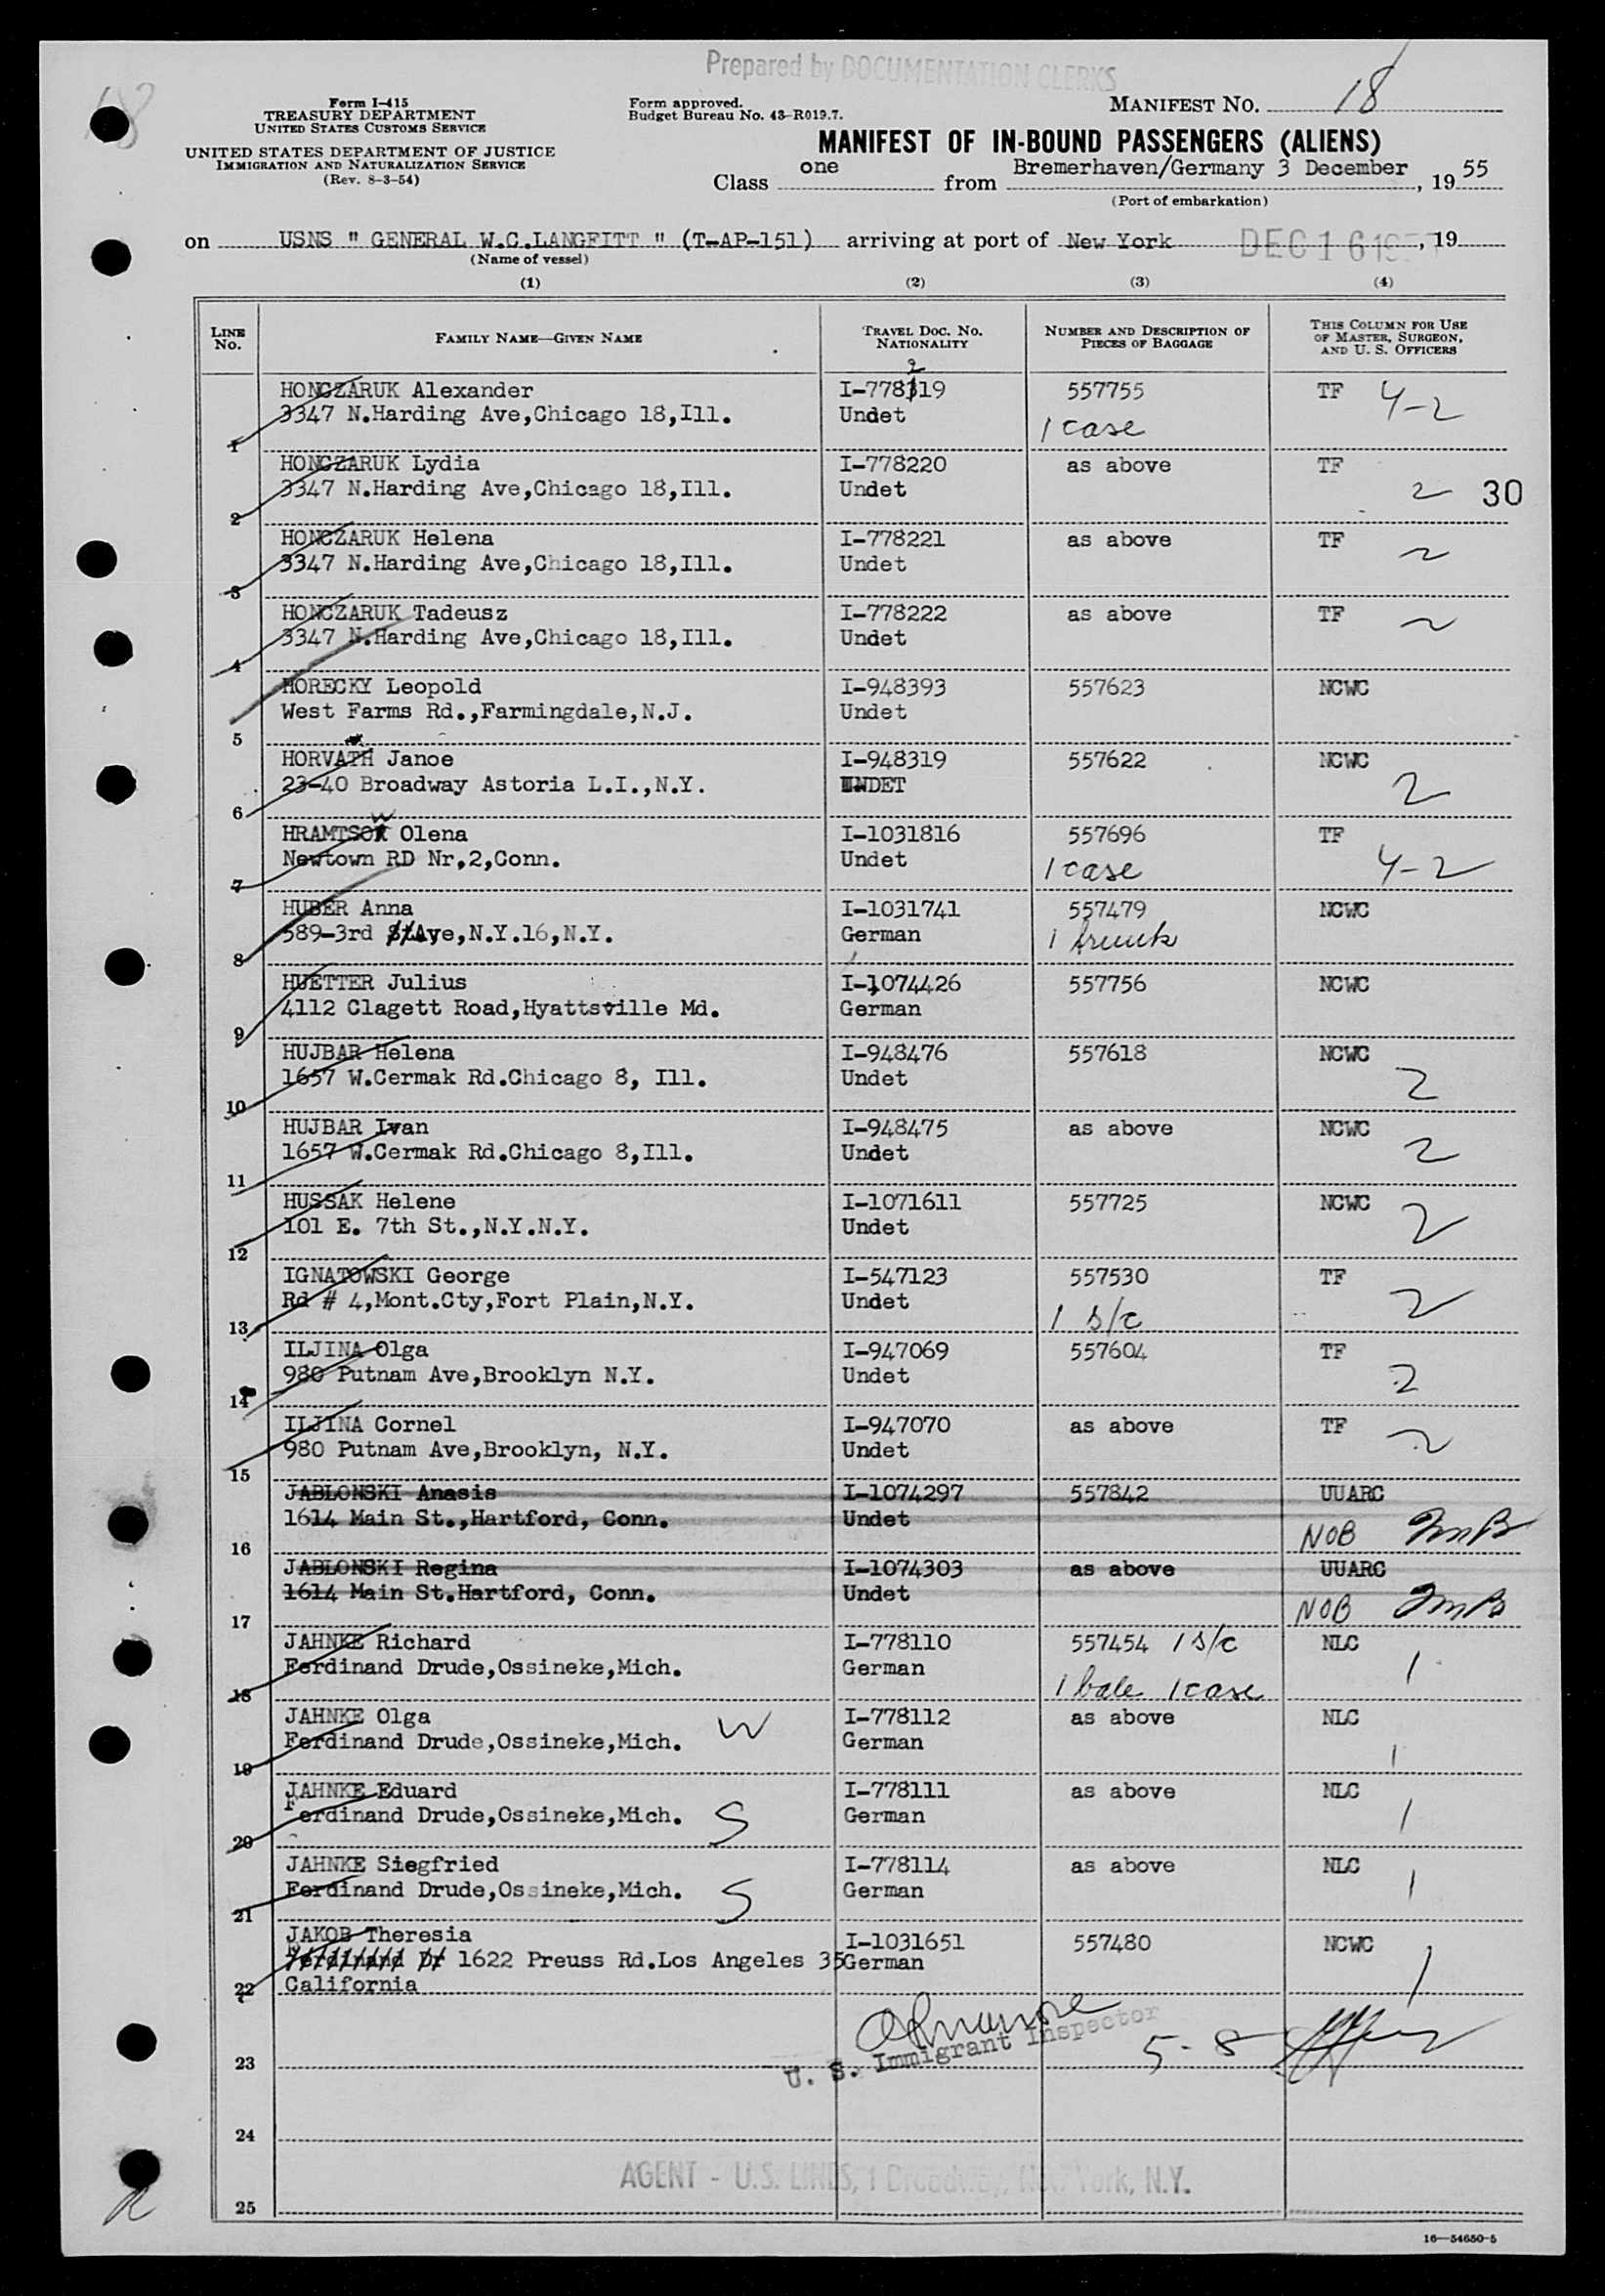 Prepared by DOCUMENTATION CLERKS
18
Form I-415
TREASURY DEPARTMENT
UNITED STATES CUSTOMS SERVICE
UNITED STATES DEPARTMENT OF JUSTICE
IMMIGRATION AND NATURALIZATION SERVICE
(Rev. 8-3-54)
Form approved.
Budget Bureau No. 43-R019.7.
MANIFEST NO. 18
MANIFEST OF IN-BOUND PASSENGERS (ALIENS)
Class one from Bremerhaven/Germany 3 December, 19 55
(Port of embarkation)
on USNS " GENERAL W.C.LANGFITT " (T-AP-151) arriving at port of New York DEC 16 19, 19
(Name of vessel)
(1) (2) (3) (4)
LINE No.
FAMILY NAME—GIVEN NAME
TRAVEL DOC. NO. NATIONALITY
NUMBER AND DESCRIPTION OF PIECES OF BAGGAGE
THIS COLUMN FOR USE OF MASTER, SURGEON, AND U. S. OFFICERS
2
HONCZARUK Alexander I-778319 557755 TF 4-2
3347 N.Harding Ave,Chicago 18,Ill. Undet 1 case
1
HONCZARUK Lydia I-778220 as above TF
3347 N.Harding Ave,Chicago 18,Ill. Undet 2 30
2
HONCZARUK Helena I-778221 as above TF
3347 N.Harding Ave,Chicago 18,Ill. Undet 2
3
HONCZARUK Tadeusz I-778222 as above TF 2
3347 N.Harding Ave,Chicago 18,Ill. Undet
4
HORECKY Leopold I-948393 557623 NCWC
West Farms Rd.,Farmingdale,N.J. Undet
5
HORVATH Janoe I-948319 557622 NCWC
23-40 Broadway Astoria L.I.,N.Y. UNDET 2
6
W
HRAMTSOK Olena I-1031816 557696 TF
Newtown RD Nr,2,Conn. Undet 1 case 4-2
7
HUBER Anna I-1031741 557479 NCWC
589-3rd St Ave,N.Y.16,N.Y. German 1 trunk
8
HUETTER Julius I-1074426 557756 NCWC
4112 Clagett Road,Hyattsville Md. German
9
HUJBAR Helena I-948476 557618 NCWC
1657 W.Cermak Rd.Chicago 8, Ill. Undet 2
10
HUJBAR Ivan I-948475 as above NCWC
1657 W.Cermak Rd.Chicago 8,Ill. Undet 2
11
HUSSAK Helene I-1071611 557725 NCWC
101 E. 7th St.,N.Y.N.Y. Undet 2
12
IGNATOWSKI George I-547123 557530 TF
Rd # 4,Mont.Cty,Fort Plain,N.Y. Undet 1 s/c 2
13
ILJINA Olga I-947069 557604 TF
980 Putnam Ave,Brooklyn N.Y. Undet 2
14
ILJINA Cornel I-947070 as above TF
980 Putnam Ave,Brooklyn, N.Y. Undet 2
15
JABLONSKI Anasis I-1074297 557842 UUARC
1614 Main St.,Hartford, Conn. Undet NOB JMB
16
JABLONSKI Regina I-1074303 as above UUARC
1614 Main St.Hartford, Conn. Undet NOB JMB
17
JAHNKE Richard I-778110 557454 1 s/c NLC
Ferdinand Drude,Ossineke,Mich. German 1 bale 1 case 1
18
JAHNKE Olga W I-778112 as above NLC
Ferdinand Drude,Ossineke,Mich. German 1
19
JAHNKE Eduard I-778111 as above NLC
Ferdinand Drude,Ossineke,Mich. S German 1
20
JAHNKE Siegfried I-778114 as above NLC
Ferdinand Drude,Ossineke,Mich. S German 1
21
JAKOB Theresia I-1031651 557480 NCWC
Ferdinand Dr 1622 Preuss Rd.Los Angeles 35 German 1
22 California
U. S. Immigrant Inspector
5-8
23
24
AGENT - U.S. LINES, 1 Broadway, New York, N.Y.
25
16—54650-5